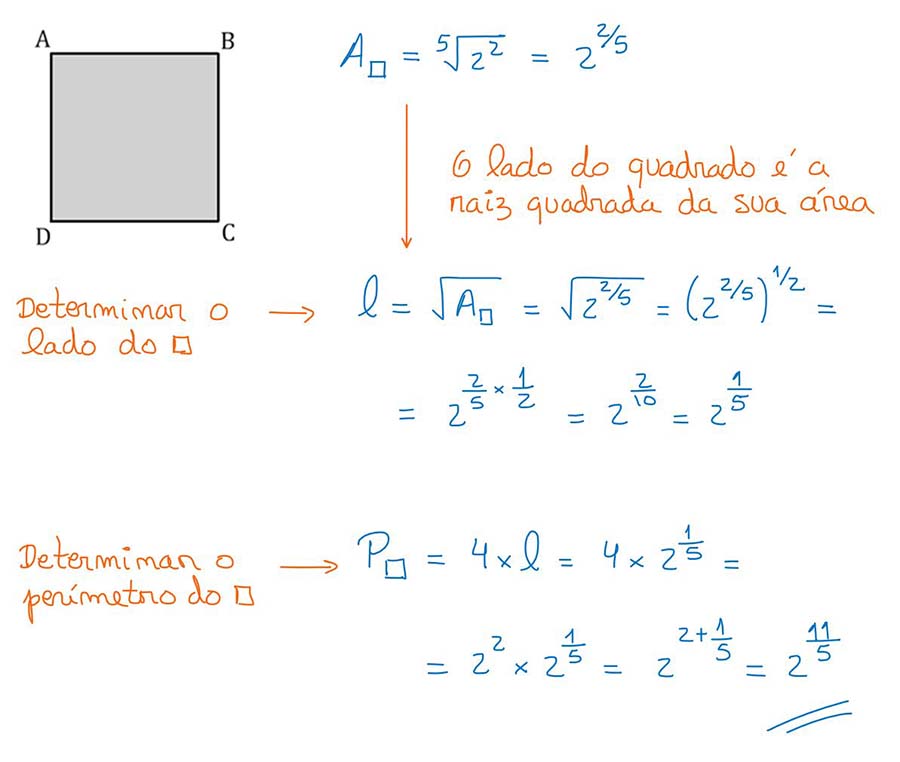 A B
D C
A□ = ⁵√2² = 2^(2/5)
O lado do quadrado é a
raiz quadrada da sua área
Determinar o
lado do □
l = √A□ = √2^(2/5) = (2^(2/5))^(1/2) =
= 2^(2/5 × 1/2) = 2^(2/10) = 2^(1/5)
Determinar o
perímetro do □
P□ = 4 × l = 4 × 2^(1/5) =
= 2² × 2^(1/5) = 2^(2+1/5) = 2^(11/5)